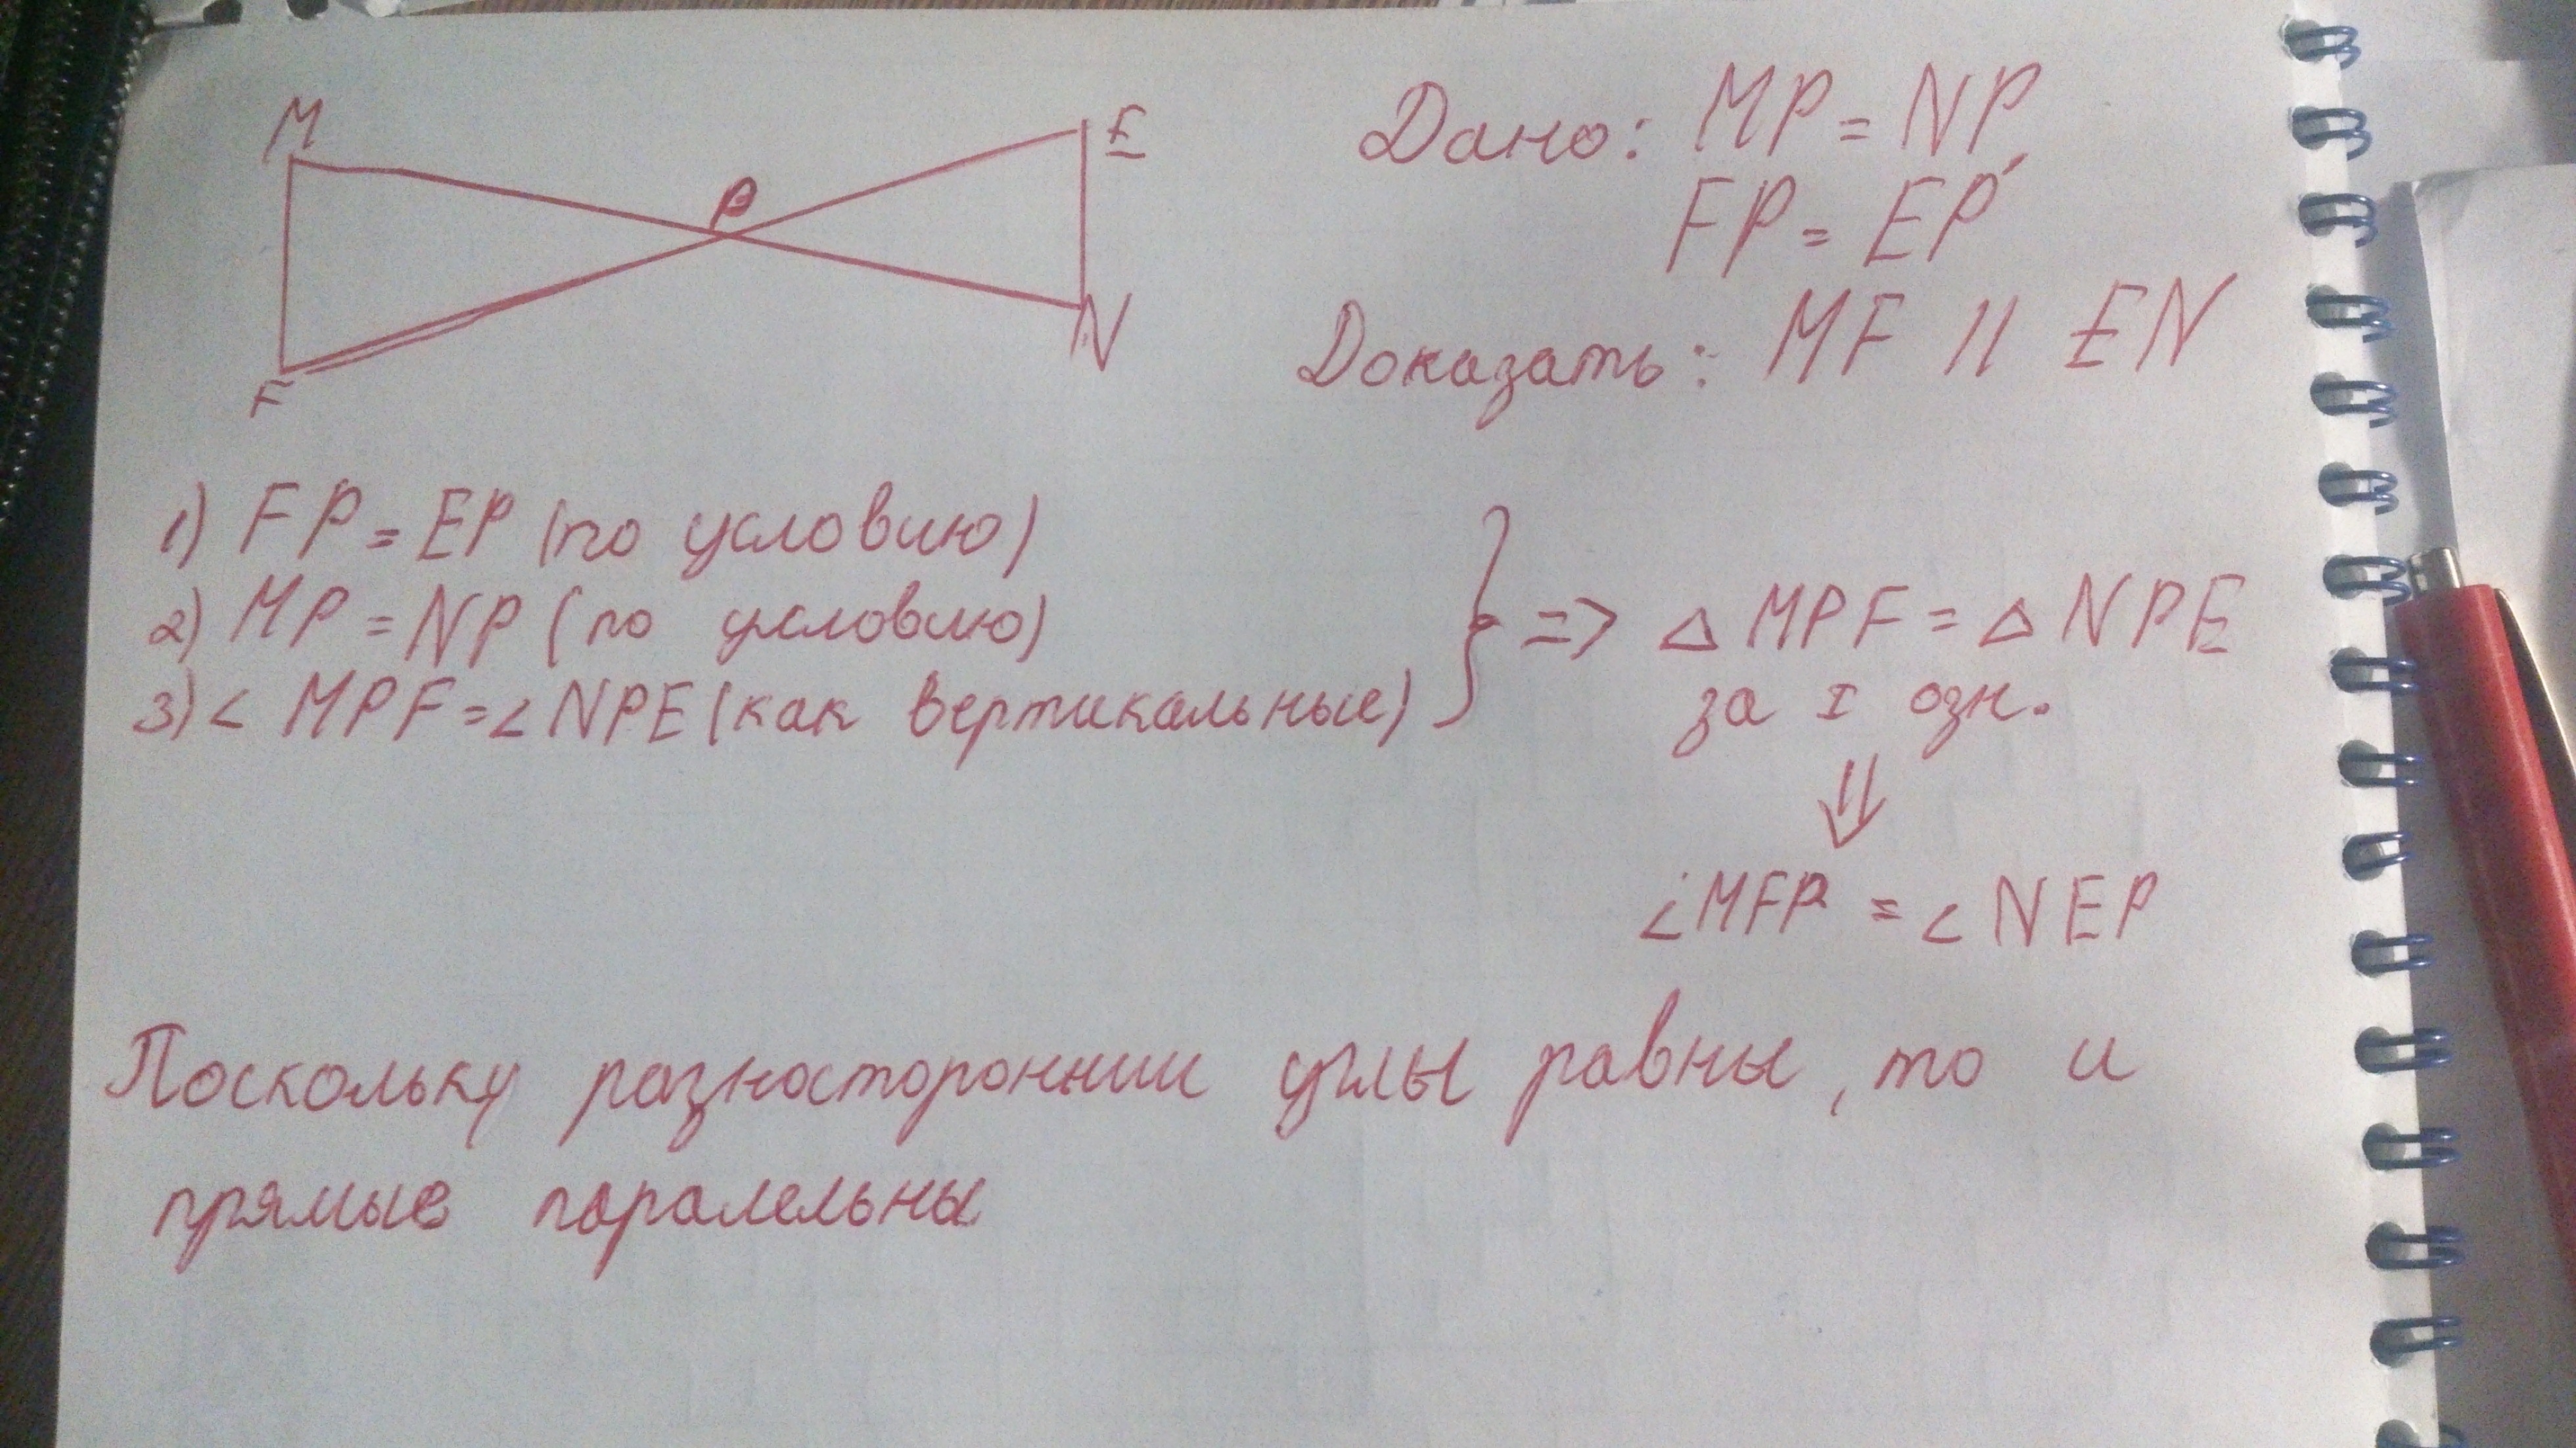 M
E
P
F
N
Дано: MP = NP,
FP = EP
Доказать: MF || EN
1) FP = EP (по условию)
2) MP = NP (по условию)
3) ∠ MPF = ∠ NPE (как вертикальные)
} => △ MPF = △ NPE
за I озн.
⇓
∠MFP = ∠NEP
Поскольку разностороннии углы равны, то и
прямые паралельны